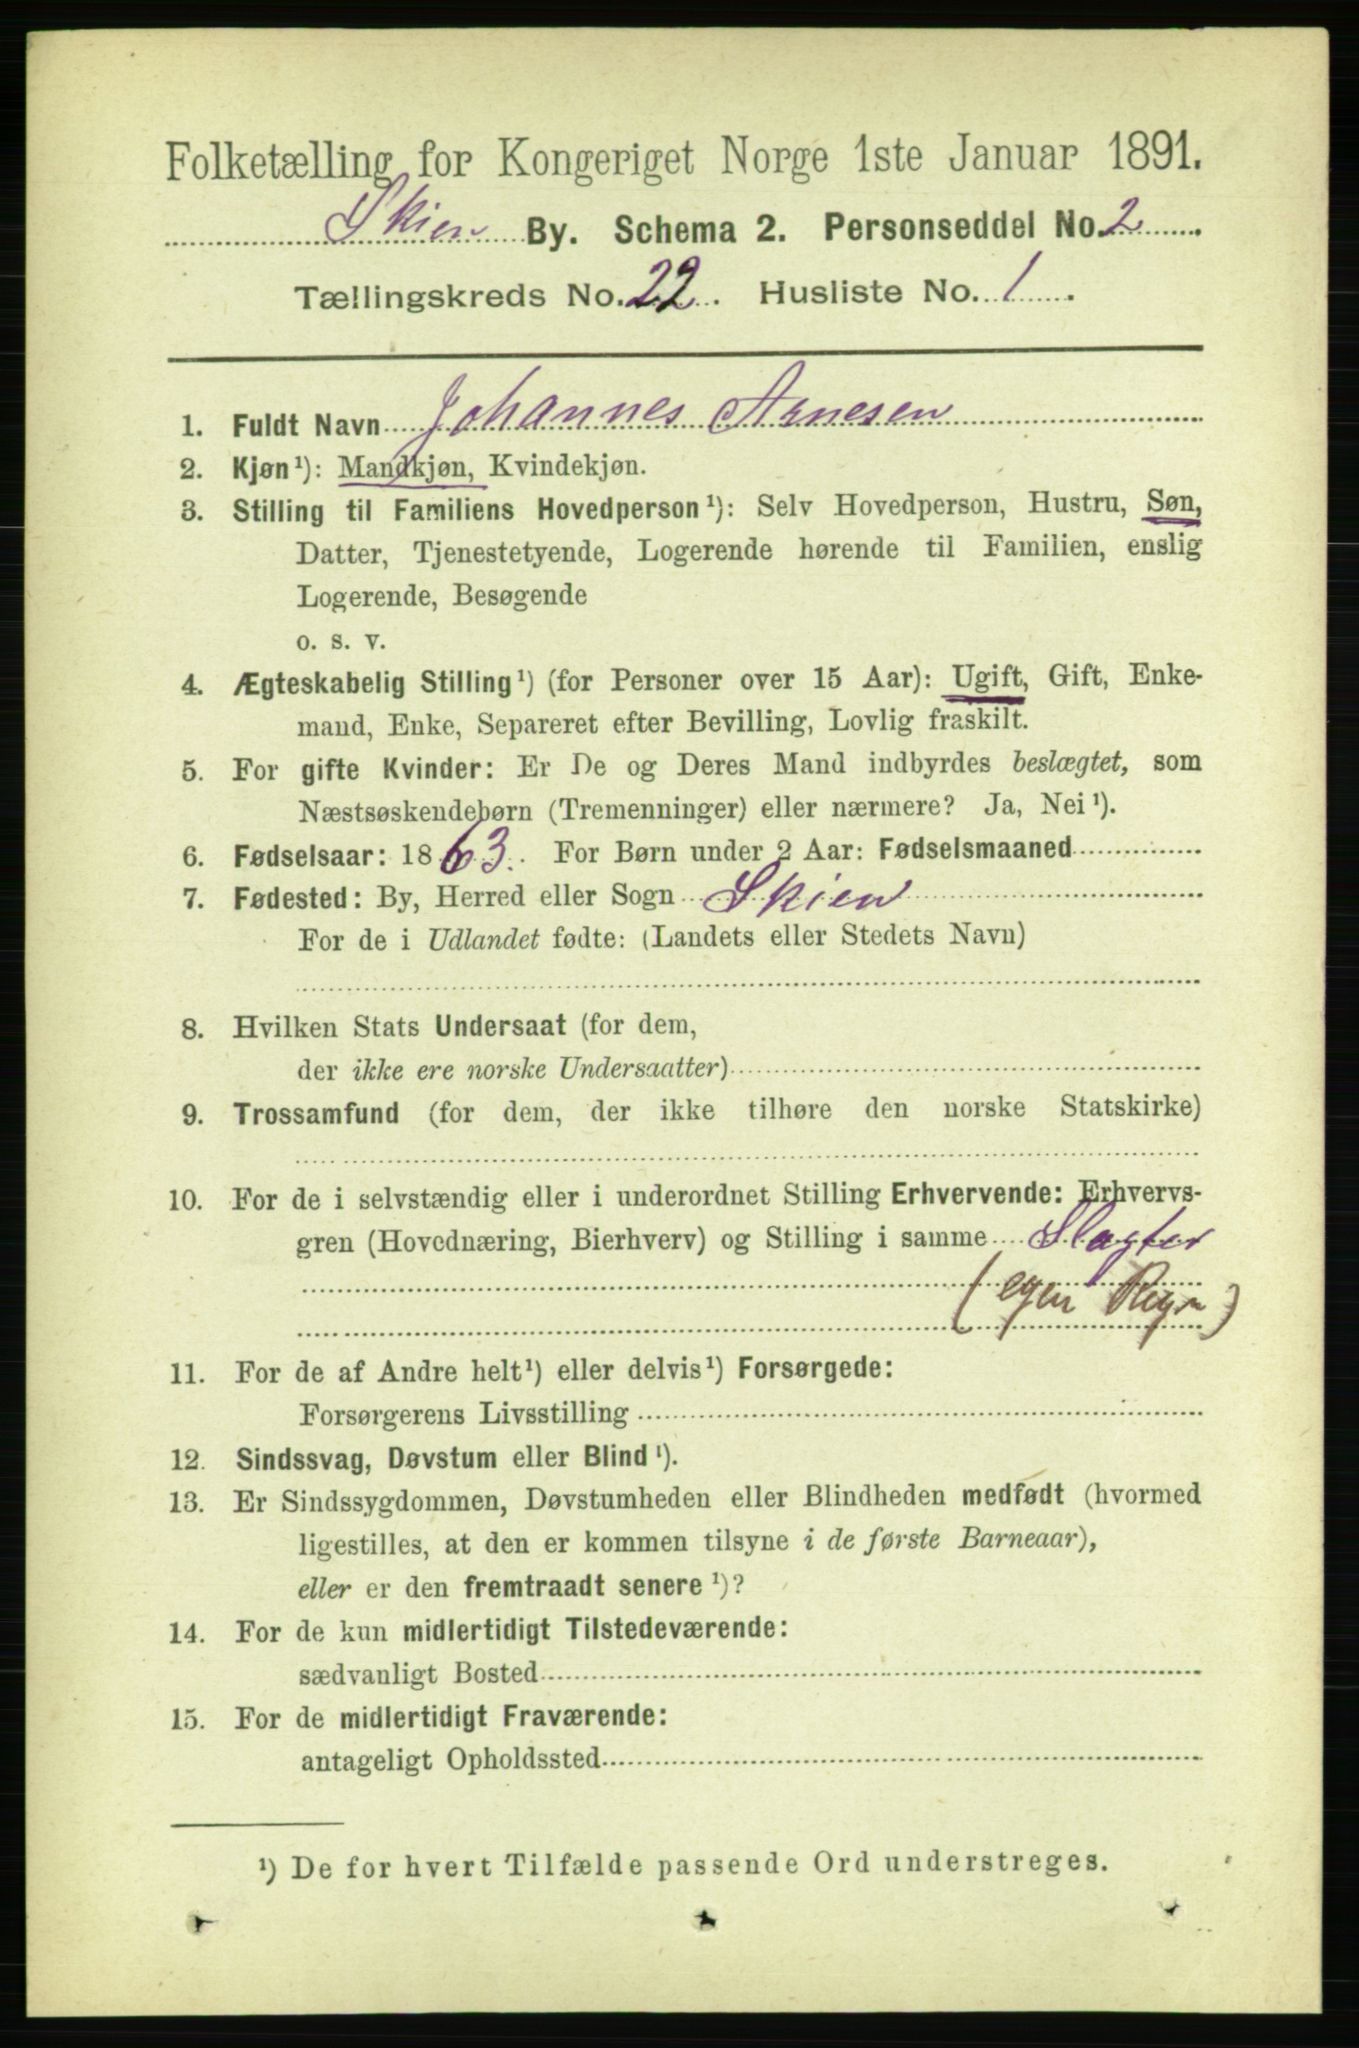 Folketælling for Kongeriget Norge 1ste Januar 1891.
Skien By. Schema 2. Personseddel No. 2
Tællingskreds No. 22. Husliste No. 1.
1. Fuldt Navn Johannes Arnesen
2. Kjøn¹): Mandkjøn, Kvindekjøn.
3. Stilling til Familiens Hovedperson¹): Selv Hovedperson, Hustru, Søn,
Datter, Tjenestetyende, Logerende hørende til Familien, enslig
Logerende, Besøgende
o. s. v.
4. Ægteskabelig Stilling¹) (for Personer over 15 Aar): Ugift, Gift, Enke-
mand, Enke, Separeret efter Bevilling, Lovlig fraskilt.
5. For gifte Kvinder: Er De og Deres Mand indbyrdes beslægtet, som
Næstsøskendebørn (Tremenninger) eller nærmere? Ja, Nei¹).
6. Fødselsaar: 1863. For Børn under 2 Aar: Fødselsmaaned
7. Fødested: By, Herred eller Sogn Skien
For de i Udlandet fødte: (Landets eller Stedets Navn)
8. Hvilken Stats Undersaat (for dem,
der ikke ere norske Undersaatter)
9. Trossamfund (for dem, der ikke tilhøre den norske Statskirke)
10. For de i selvstændig eller i underordnet Stilling Erhvervende: Erhvervs-
gren (Hovednæring, Bierhverv) og Stilling i samme Slagter
(egen Regn)
11. For de af Andre helt¹) eller delvis¹) Forsørgede:
Forsørgerens Livsstilling
12. Sindssvag, Døvstum eller Blind¹).
13. Er Sindssygdommen, Døvstumheden eller Blindheden medfødt (hvormed
ligestilles, at den er kommen tilsyne i de første Barneaar),
eller er den fremtraadt senere¹)?
14. For de kun midlertidigt Tilstedeværende:
sædvanligt Bosted
15. For de midlertidigt Fraværende:
antageligt Opholdssted
¹) De for hvert Tilfælde passende Ord understreges.